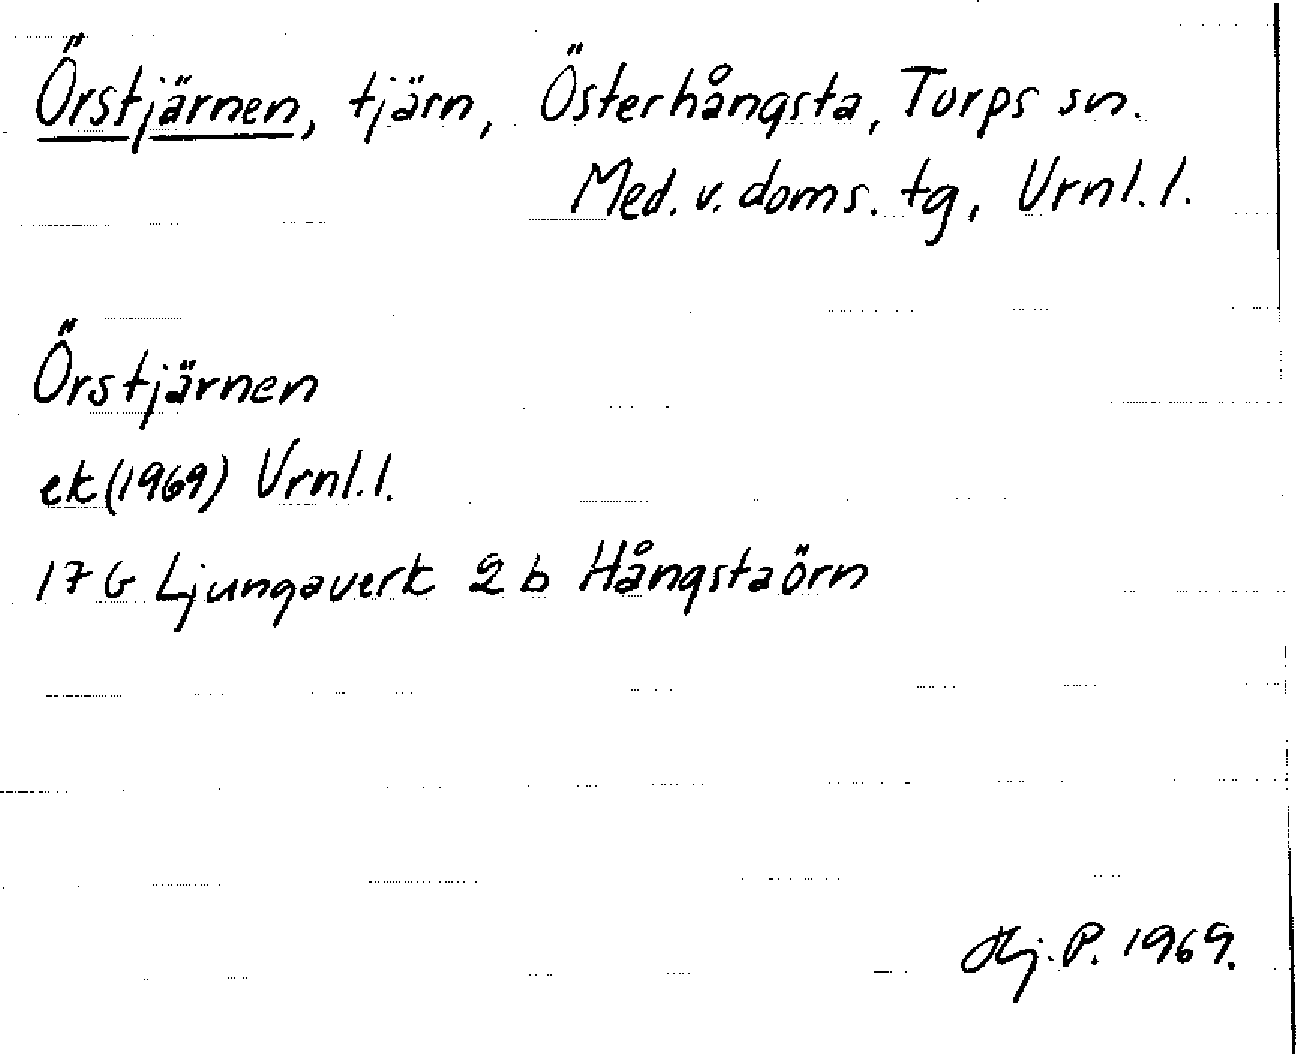 Örstjärnen, tjärn, Österhångsta, Torps sn.
Med. v. doms. tg, Vrnl. l.
Örstjärnen
ek (1969) Vrnl. l.
17 G Ljungaverk 2 b Hångstaörn
Hj. P. 1969.